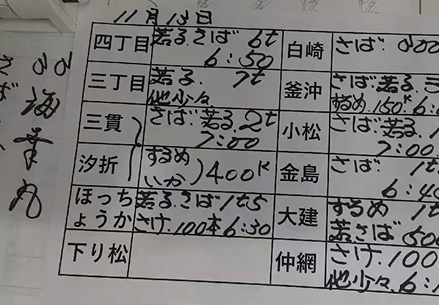 11月13日
四丁目 若る.さば 6t
6:50
三丁目 若る. 7t
他少々
三貫 さば.若る.2t
7:00
汐折 するめ
いか 400K
ほっち
ょうか 若る.さば 1t5
さけ.100本 6:30
下り松
白崎 さば.
釜沖 さば.若る.
するめ.150K
小松 さば.若る.
7:00
金島 さば. 1t
6:40
大建 するめ 1t
若さば 500
仲網 さけ.100
他少々.6:1
海幸丸